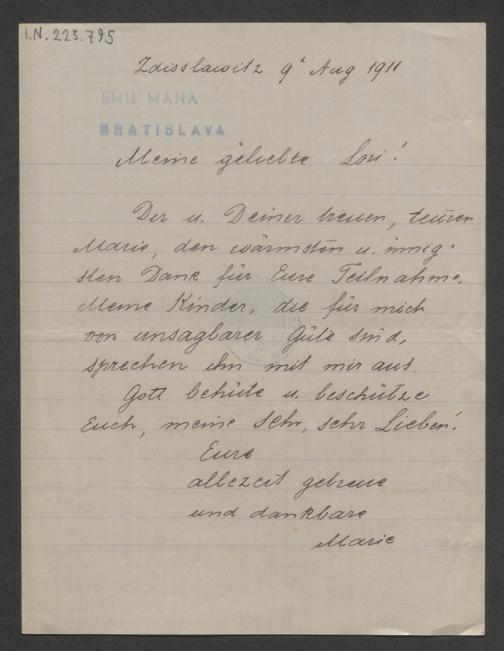 I.N. 223.795
Zdisslawitz 9t Aug 1911
EMIL MANA
BRATISLAVA
Meine geliebte Lori!
Dir u. Deiner treuen, teuren
Marie, den wärmsten u. innig-
sten Dank für Eure Teilnahme.
Meine Kinder, die für mich
von unsagbarer Güte sind,
sprechen ihn mit mir aus.
Gott behüte u. beschütze
Euch, meine sehr, sehr Lieben!
Eure
allezeit getreue
und dankbare
Marie